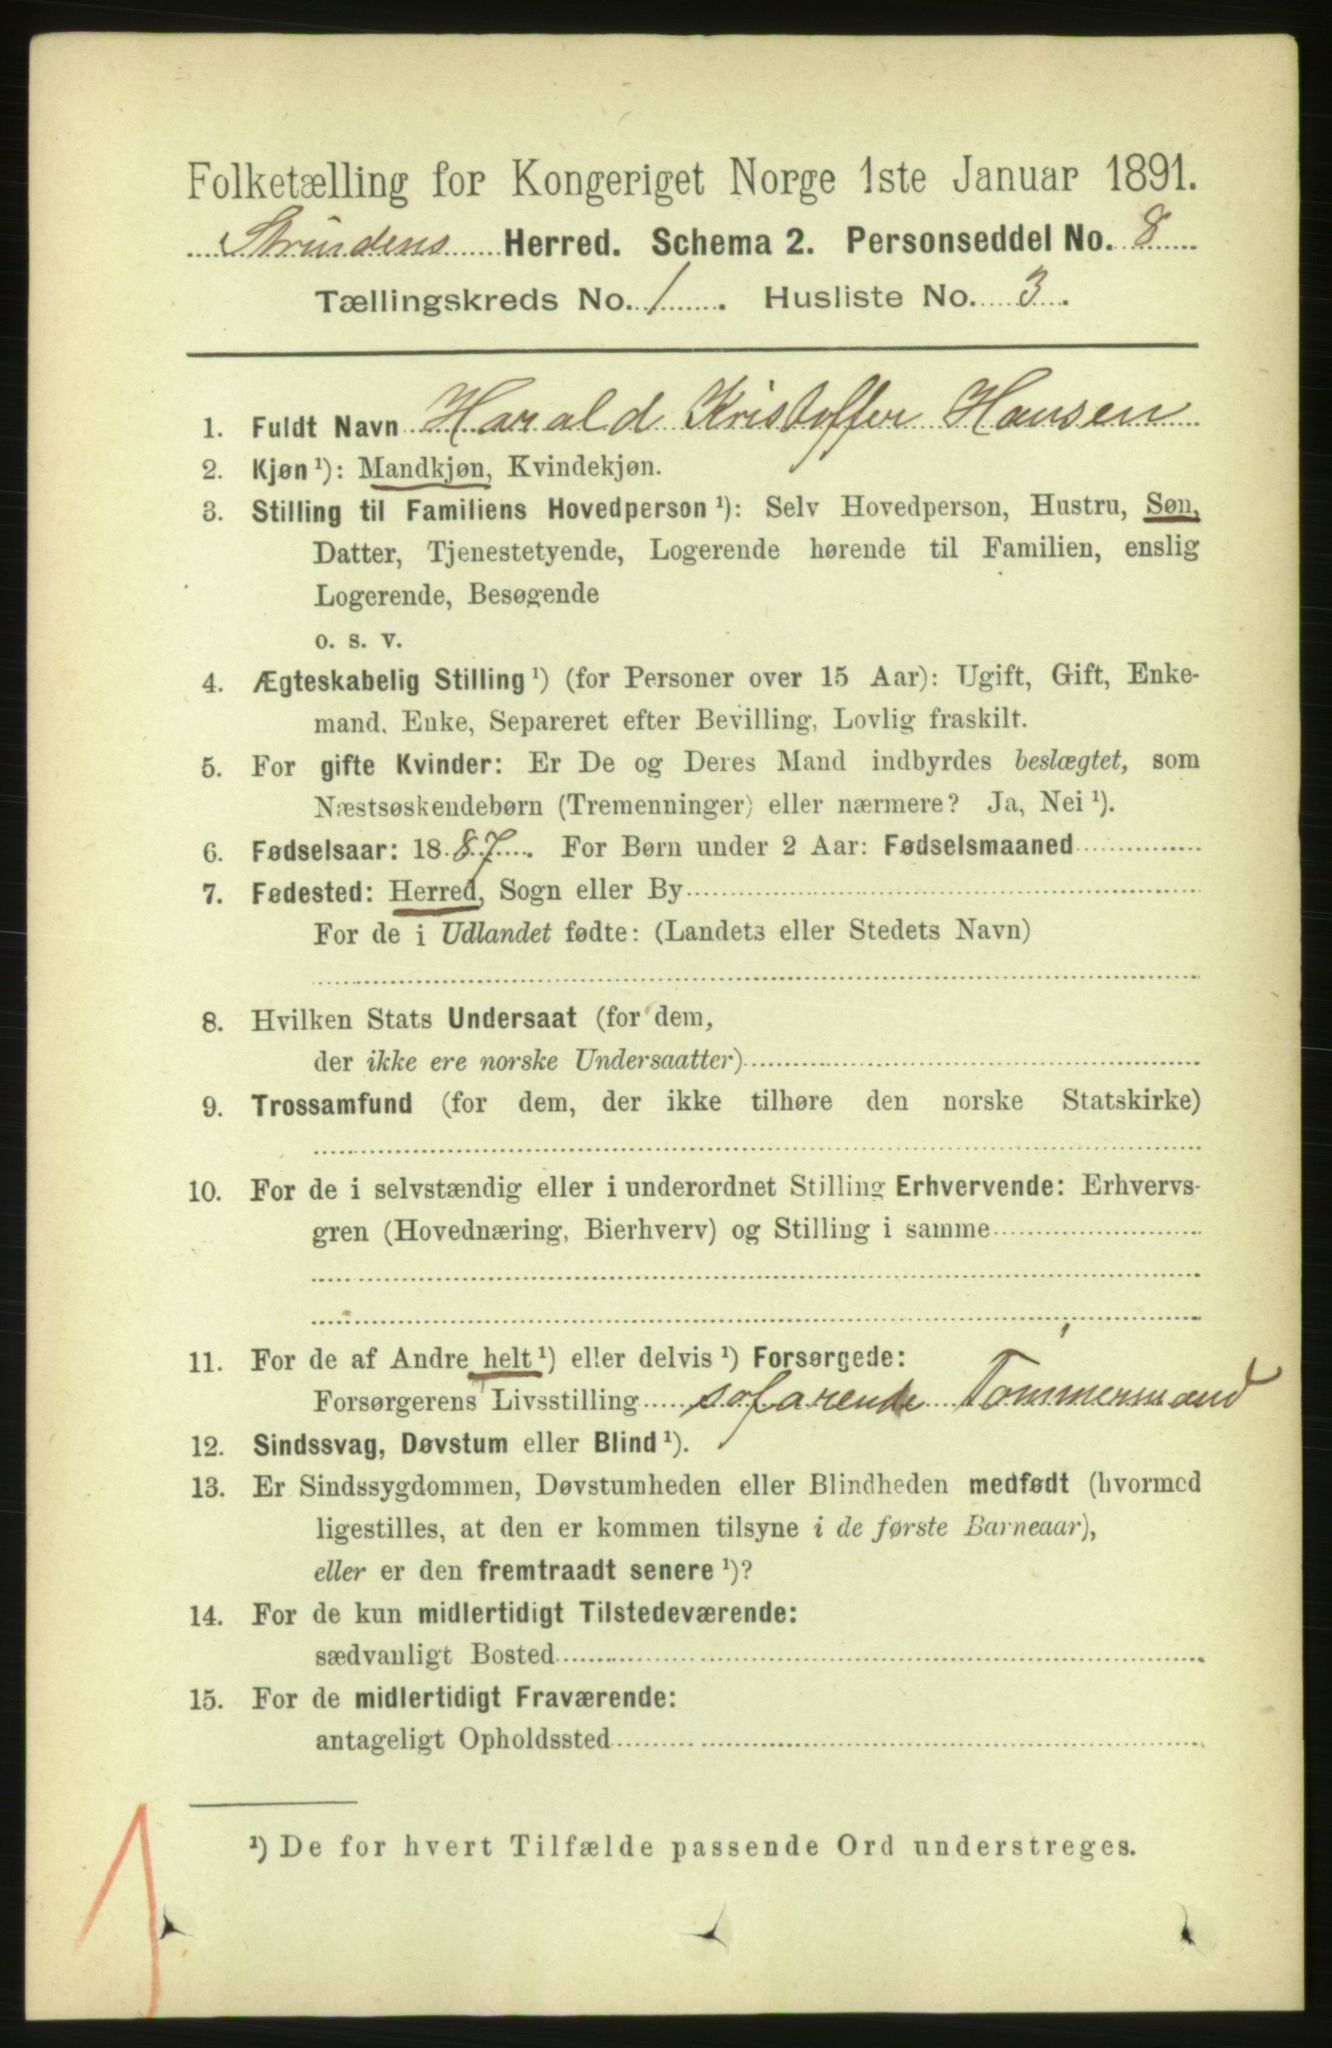 Folketælling for Kongeriget Norge 1ste Januar 1891.
Strindens Herred. Schema 2. Personseddel No. 8
Tællingskreds No. 1. Husliste No. 3.
1. Fuldt Navn Harald Kristoffer Hansen
2. Kjøn ¹): Mandkjøn, Kvindekjøn.
3. Stilling til Familiens Hovedperson ¹): Selv Hovedperson, Hustru, Søn,
Datter, Tjenestetyende, Logerende hørende til Familien, enslig
Logerende, Besøgende
o. s. v.
4. Ægteskabelig Stilling ¹) (for Personer over 15 Aar): Ugift, Gift, Enke-
mand, Enke, Separeret efter Bevilling, Lovlig fraskilt.
5. For gifte Kvinder: Er De og Deres Mand indbyrdes beslægtet, som
Næstsøskendebørn (Tremenninger) eller nærmere? Ja, Nei ¹).
6. Fødselsaar: 1887. For Børn under 2 Aar: Fødselsmaaned
7. Fødested: Herred, Sogn eller By
For de i Udlandet fødte: (Landets eller Stedets Navn)
8. Hvilken Stats Undersaat (for dem,
der ikke ere norske Undersaatter)
9. Trossamfund (for dem, der ikke tilhøre den norske Statskirke)
10. For de i selvstændig eller i underordnet Stilling Erhvervende: Erhvervs-
gren (Hovednæring, Bierhverv) og Stilling i samme
11. For de af Andre helt ¹) eller delvis ¹) Forsørgede:
Forsørgerens Livsstilling søfarende Tømmermand
12. Sindssvag, Døvstum eller Blind ¹).
13. Er Sindssygdommen, Døvstumheden eller Blindheden medfødt (hvormed
ligestilles, at den er kommen tilsyne i de første Barneaar),
eller er den fremtraadt senere ¹)?
14. For de kun midlertidigt Tilstedeværende:
sædvanligt Bosted
15. For de midlertidigt Fraværende:
antageligt Opholdssted
¹) De for hvert Tilfælde passende Ord understreges.
1